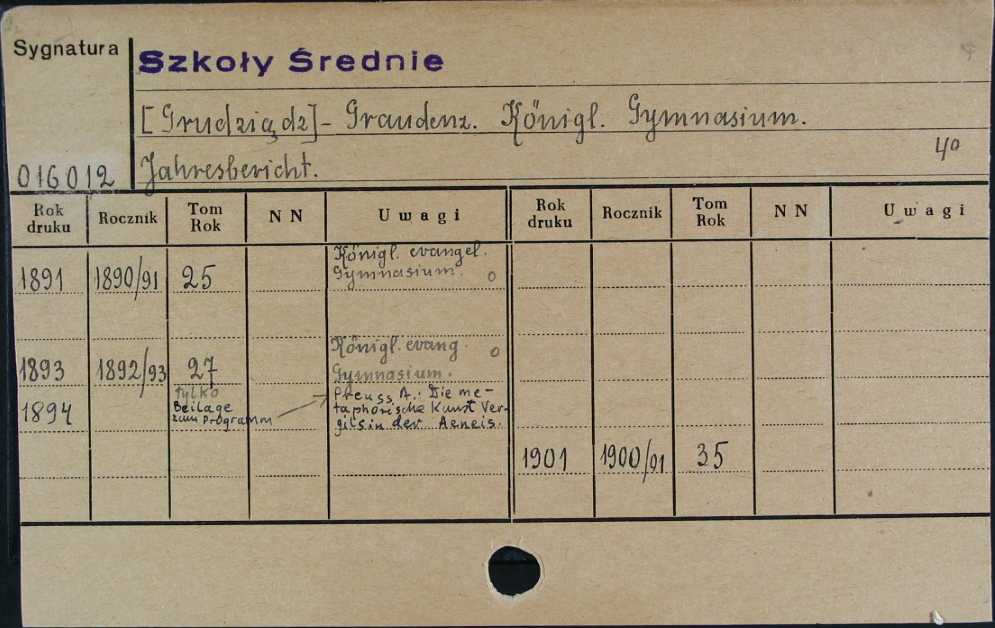 Sygnatura
Szkoły Średnie
[Grudziądz] - Graudenz. Königl. Gymnasium.
4o
016012
Jahresbericht.
Rok druku Rocznik Tom Rok NN Uwagi Rok druku Rocznik Tom Rok NN Uwagi
Königl. evangel.
1891 1890/91 25 Gymnasium. o
Königl. evang. o
1893 1892/93 27 Gymnasium.
tylko
1894 Beilage zum Programm
Preuss A.: Die me-
taphorische Kunst Ver-
gils in der Aeneis.
1901 1900/91 35